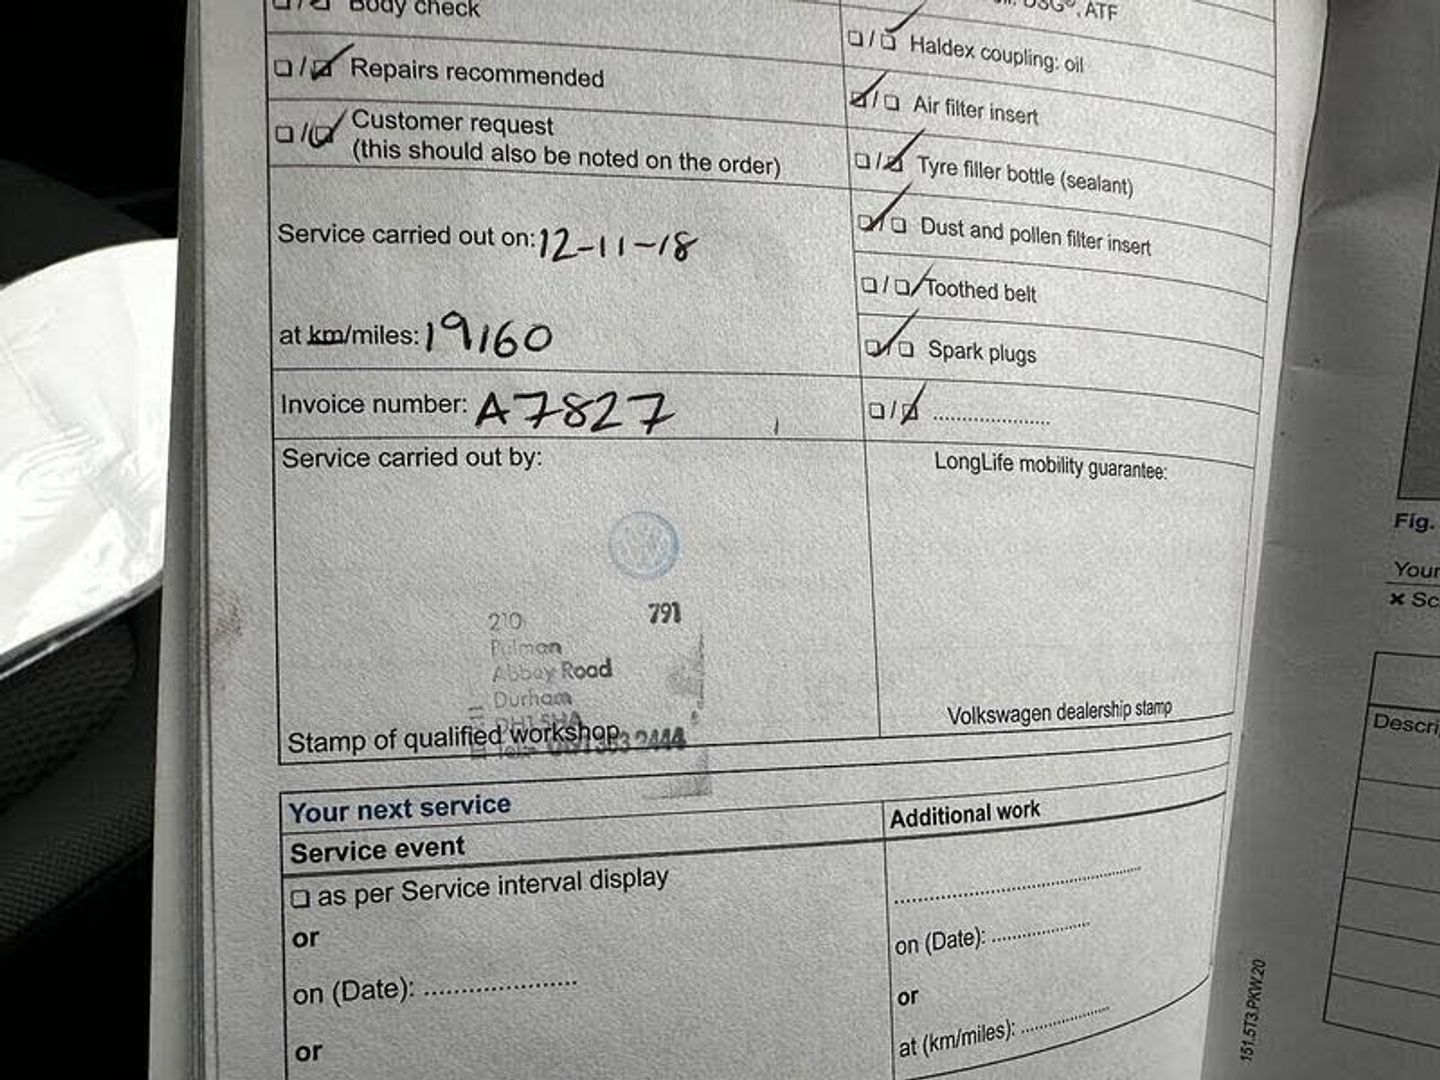 Body check
DSG®, ATF
☐/☑ Haldex coupling: oil
☐/☑ Repairs recommended
☑/☐ Air filter insert
☐/☑ Customer request
(this should also be noted on the order)
☐/☑ Tyre filler bottle (sealant)
Service carried out on: 12-11-18
☑/☐ Dust and pollen filter insert
☐/☑ Toothed belt
at km/miles: 19160
☑/☐ Spark plugs
Invoice number: A7827
☐/☑ ......................
Service carried out by:
LongLife mobility guarantee:
210 791
Pulman
Abbey Road
Durham
Volkswagen dealership stamp
Stamp of qualified workshop
2444
Your next service
Service event
Additional work
☐ as per Service interval display
or
on (Date): ......................
or
on (Date): ......................
or
at (km/miles): ....................
151.5T3.PKW.20
Fig.
Your
× Sc
Descri